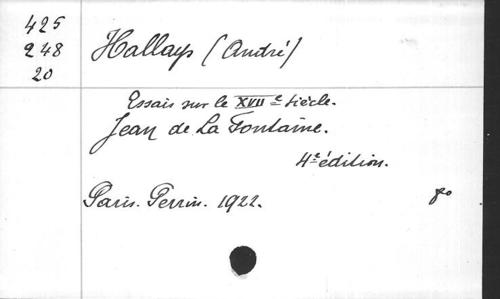 425
248
20
Hallays (André)
Essais sur le XVIIe siècle.
Jean de La Fontaine.
4e édition.
Paris. Perrin. 1922. 8o